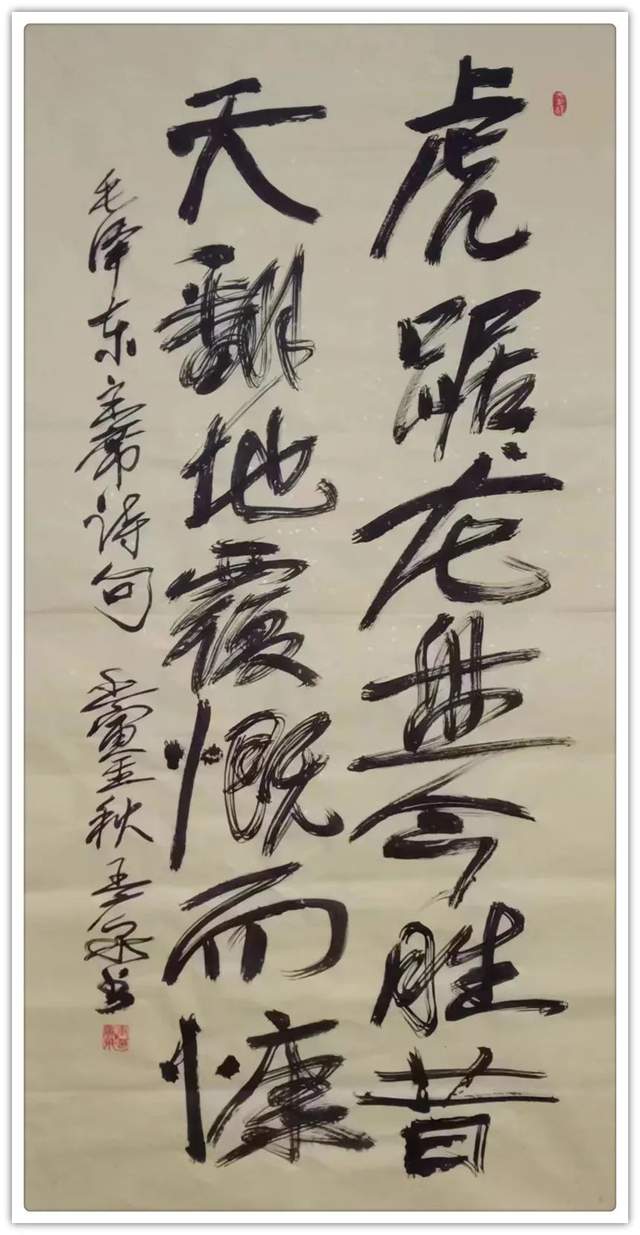 虎踞龙盘今胜昔
天翻地覆慨而慷
毛泽东主席诗句 秋 书